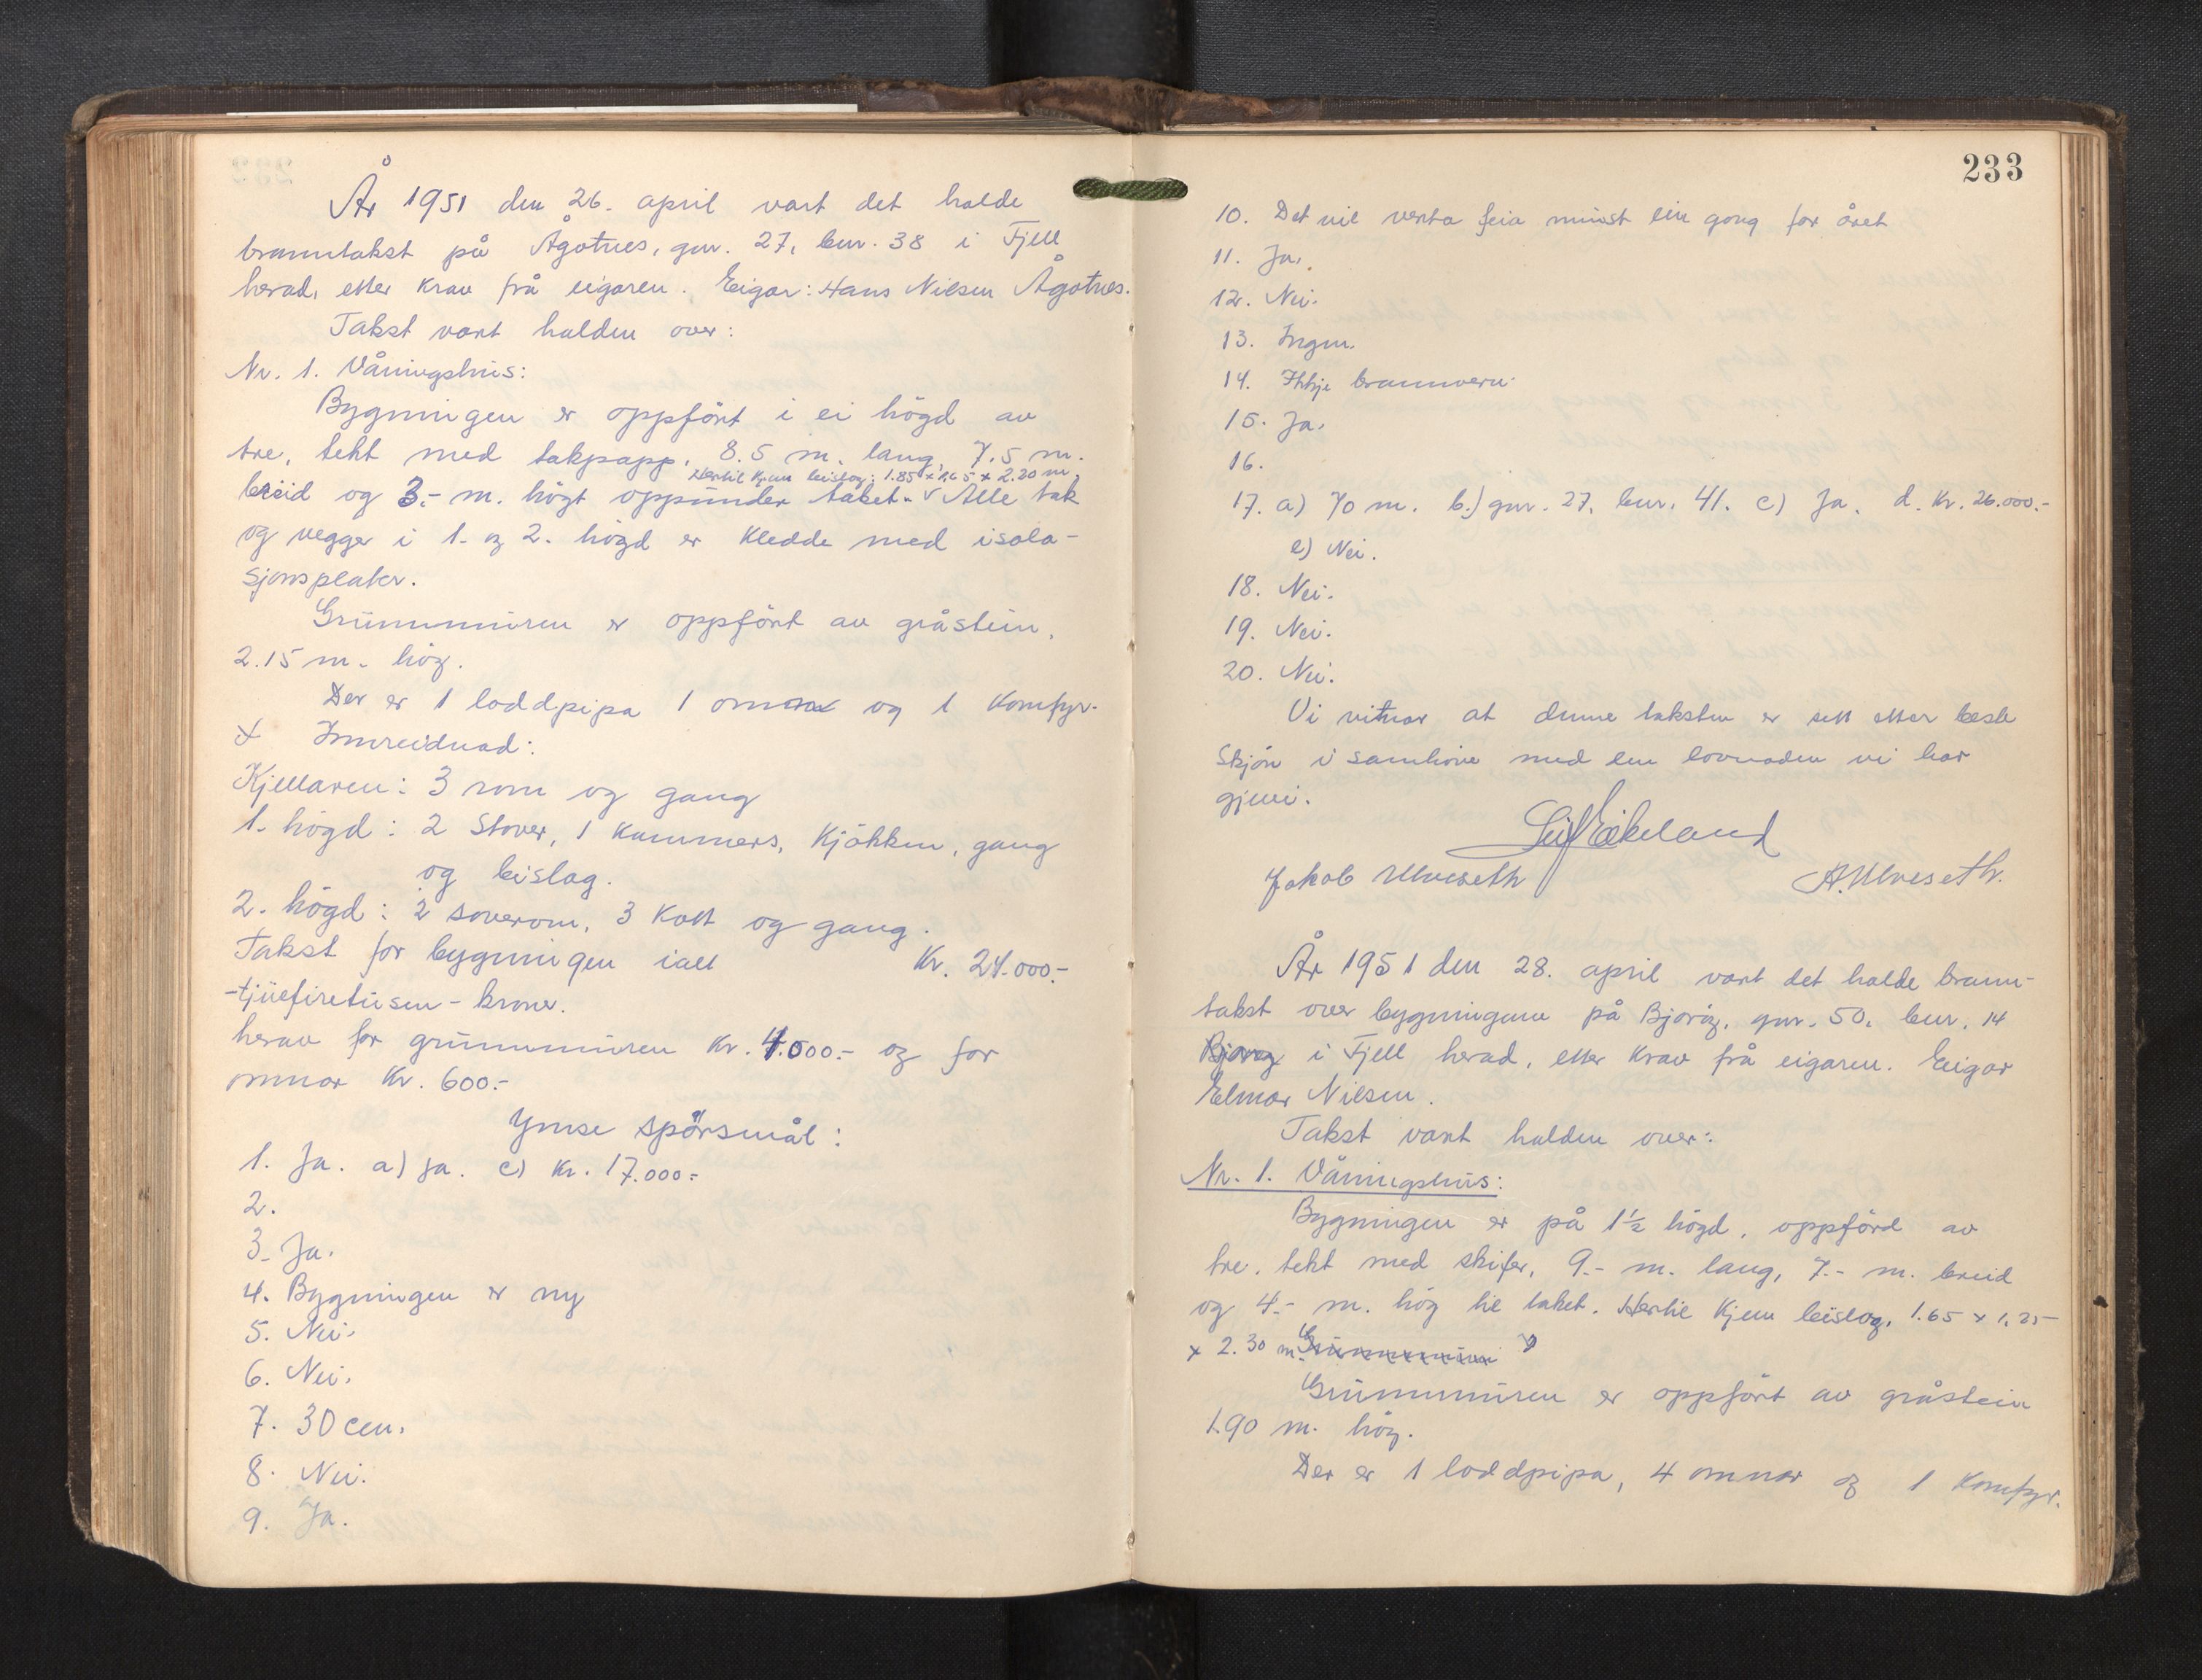 År 1951 den 26. april vart det halde
branntakst på Ågotnes, gnr. 27, bnr. 38 i Fjell
herad, etter krav frå eigaren. Eigar: Hans Nilsen Ågotnes.
Takst vart halden over:
Nr. 1. Våningshus:
Bygningen er oppført i ei högd av
tre, tekt med takpapp. 8.5 m. lang, 7.5 m.
Hertil kjem beislag: 1.85 x 1.65 x 2.20 m.
breid og 3.- m. högt oppunder taket. v Alle tak
og vegger i 1. og 2. högd er kledde med isola-
sjonsplater.
Grunnmuren er oppfört av gråstein,
2.15 m. hög.
Der er 1 loddpipa 1 omn og 1 komfyr.
x Innreidnad:
Kjellaren: 3 rom og gang
1. högd: 2 stover, 1 kammers, kjökken, gang
og beislag.
2. högd: 2 soverom, 3 kott og gang.
Takst for bygningen ialt Kr. 24.000.-
-tjuefiretusen- kroner.
herav for grunnmuren kr. 4.000.- og for
omnar kr. 600.-
Ymse spörsmål:
1. Ja. a) ja. c) kr. 17.000.-
2.
3. Ja.
4. Bygningen er ny
5. Nei.
6. Nei.
7. 30 cm.
8. Nei.
9. Ja.
233
10. Det vil verta feia minst ein gong for året
11. Ja.
12. Nei.
13. Ingen.
14. Ikkje brannvern.
15. Ja.
16.
17. a) 70 m. b.) gnr. 27, bnr. 41. c) Ja. d. kr. 26.000.-
e) Nei.
18. Nei.
19. Nei.
20. Nei.
Vi vitnar at denne taksten er sett etter beste
skjön i samhöve med den lovnaden vi har
gjevi.
Leif Eikeland
Jakob Ulveseth A. Ulveseth.
År 1951 den 28. april vart det halde brann-
takst over bygningane på Bjoröy, gnr. 50, bnr. 14
i Fjell herad, etter krav frå eigaren. Eigar
Elmar Nilsen.
Takst vart halden over:
Nr. 1. Våningshus:
Bygningen er på 1½ högd, oppförd av
tre, tekt med skifer, 9.- m. lang, 7.- m. breid
og 4.- m. hög til taket. Hertil kjem beislag, 1.65 x 1.25
x 2.30 m. Grunnmuren
Grunnmuren er oppfört av gråstein
1.90 m. hög.
Der er 1 loddpipa, 4 omnar og 1 komfyr.